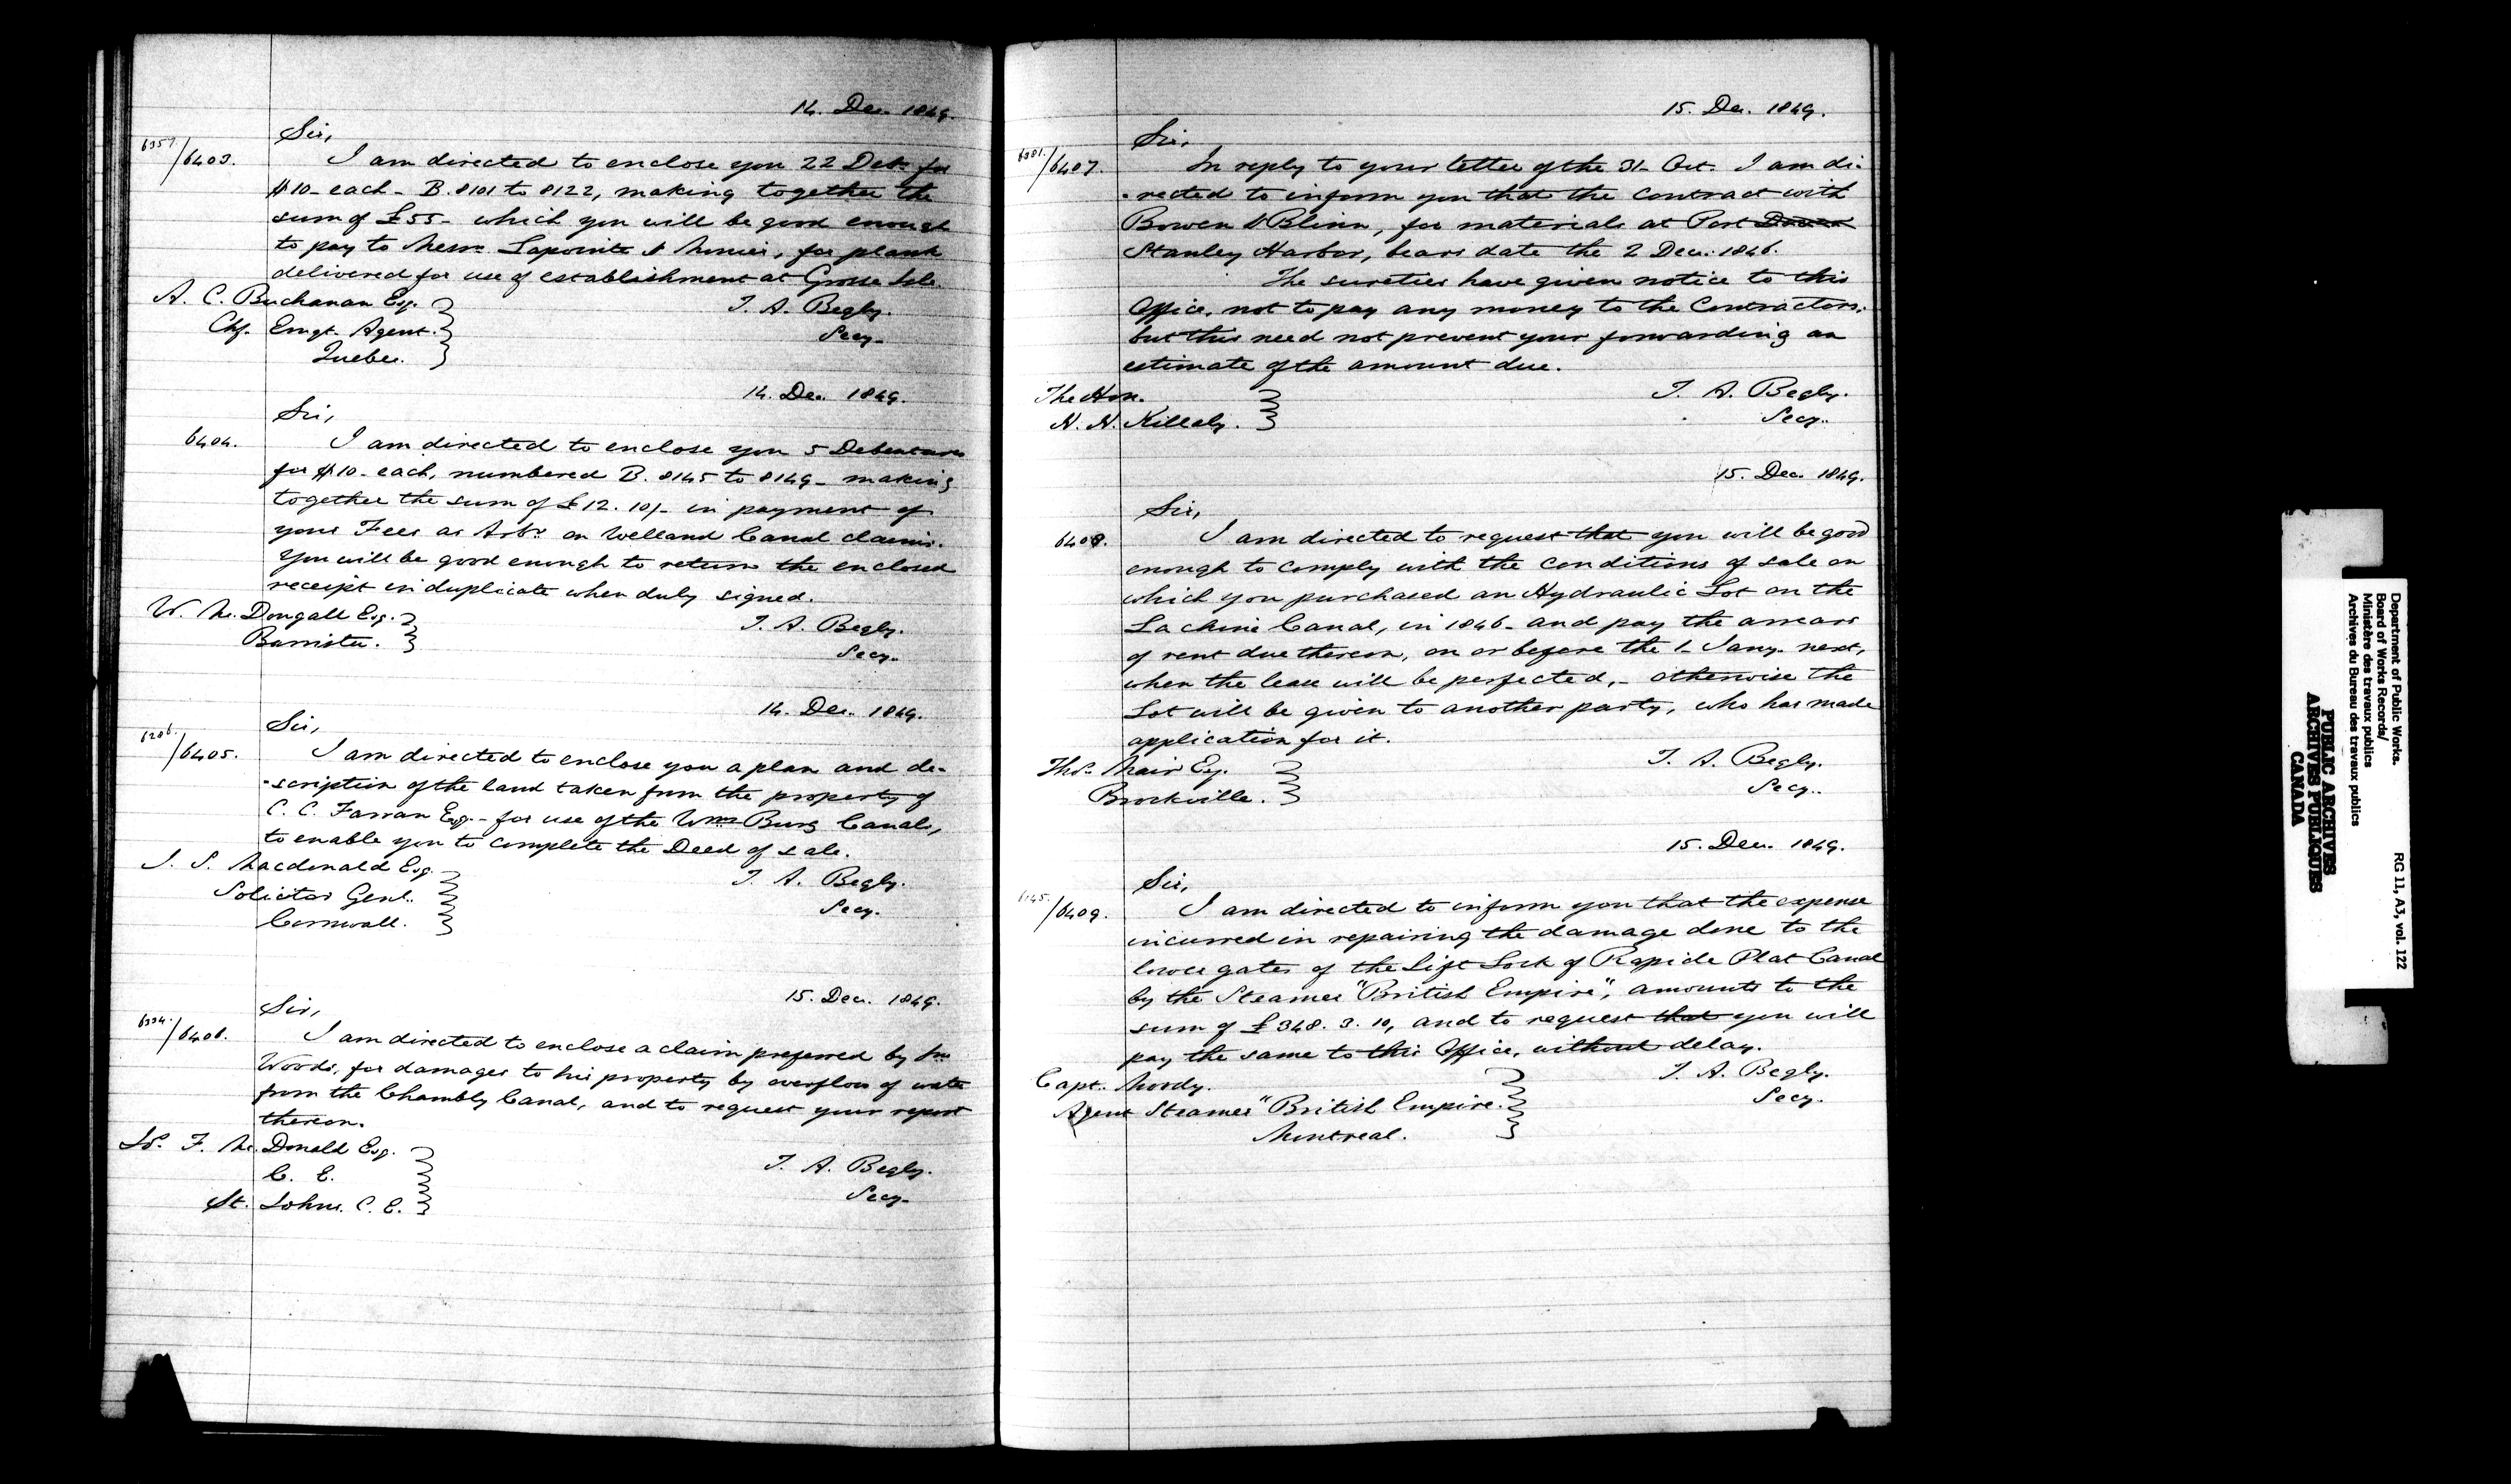 14. Dec. 1849.
Sir,
6357/6403. I am directed to enclose you 22 Debs. for
$10_ each_ B. 8101 to 8122, making together the
sum of £55_ which you will be good enough
to pay to Messrs. Lapointe & , for plank
delivered for use of establishment at Grosse Isle.
A. C. Buchanan Esq. T. A. Begly.
Chf. Emgt. Agent. Secy.
Quebec.
14. Dec. 1849.
Sir,
6404. I am directed to enclose you 5 Debentures
for $10_ each, numbered B. 8145 to 8149_ making
together the sum of £12. 10/_ in payment of
your Fees as Arbr. on Welland Canal claims.
You will be good enough to return the enclosed
receipt in duplicate when duly signed.
W. Mc.Dougall Esq. T. A. Begly.
Barrister. Secy.
14. Dec. 1849.
Sir,
6206./6405. I am directed to enclose you a plan and de-
-scription of the land taken from the property of
C. C. Farran Esq. - for use of the Wms Burg Canals,
to enable you to complete the Deed of sale.
J. S. Macdonald Esq. T. A. Begly.
Solicitor Genl. Secy.
Cornwall.
15. Dec. 1849.
Sir,
6334./6406. I am directed to enclose a claim preferred by Jno
Woods, for damages to his property by overflow of water
from the Chambly Canal, and to request your report
thereon.
F. Mc.Donald Esq.
C. E. T. A. Begly.
St. Johns. C. E. Secy.
15. Dec. 1849.
Sir,
6381./6407. In reply to your letter of the 31_ Oct. I am di-
-rected to inform you that the contract with
Bowen & Blinn, for materials at Port Dover
Stanley Harbor, bears date the 2 Dec. 1846.
The sureties have given notice to this
Office, not to pay any money to the Contractors;
but this need not prevent your forwarding an
estimate of the amount due.
The Hon. T. A. Begly.
H. H. Killaly. Secy.
15. Dec. 1849.
Sir,
6408. I am directed to request that you will be good
enough to comply with the conditions of sale on
which you purchased an Hydraulic Lot on the
Lachine Canal, in 1846_ and pay the arrears
of rent due thereon, on or before the 1_ Jany. next,
when the lease will be perfected,_ otherwise the
Lot will be given to another party, who has made
application for it.
Thos. Mair Esq. T. A. Begly.
Brockville. Secy.
15. Dec. 1849.
Sir,
6145./6409. I am directed to inform you that the expense
incurred in repairing the damage done to the
lower gates of the Lift Lock of Rapide Plat Canal
by the Steamer "British Empire", amounts to the
sum of £348. 3. 10, and to request that you will
pay the same to this Office, without delay.
Capt. Moody. T. A. Begly.
Agent Steamer "British Empire. Secy.
Montreal.
Department of Public Works.
Board of Works Records/
Ministère des travaux publics
Archives du Bureau des travaux publics
RG 11, A3, vol. 122
PUBLIC ARCHIVES
ARCHIVES PUBLIQUES
CANADA